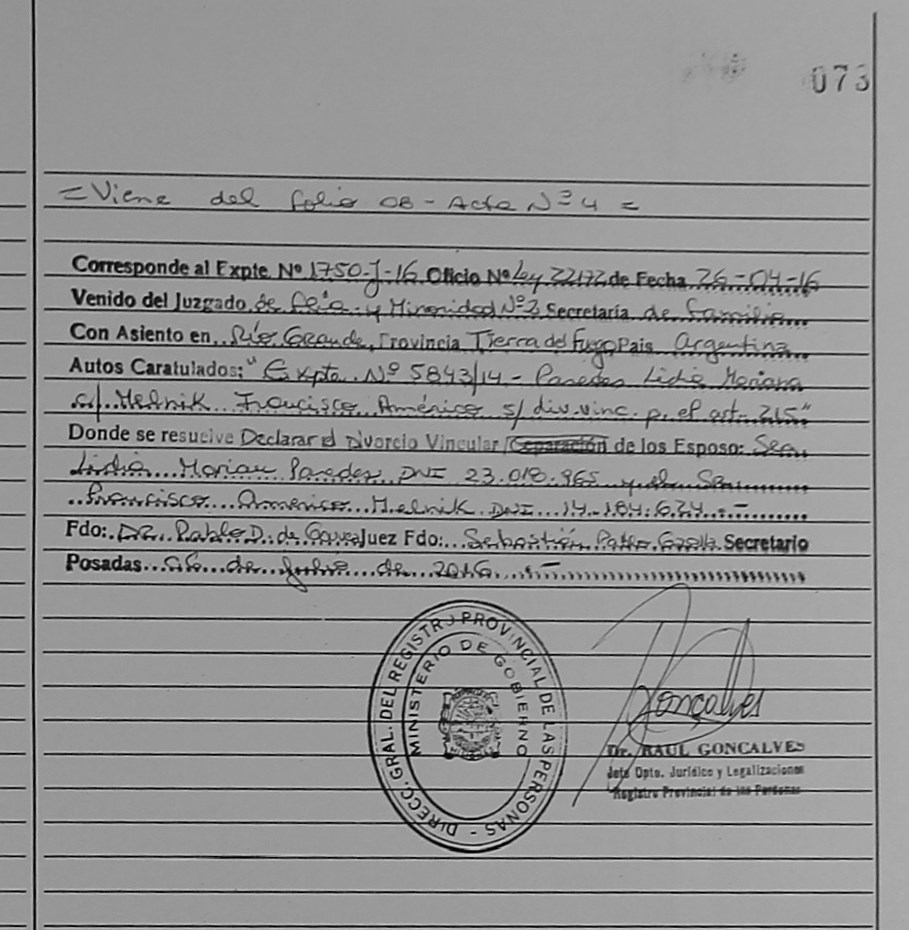 073
= Viene del folio 08 - Acta Nº 4 =
Corresponde al Expte. Nº 1750-J-16 Oficio Nº Ley 22172 de Fecha 26-04-16
Venido del Juzgado de Flia. y Minoridad Nº 2 Secretaría de Familia
Con Asiento en Río Grande, Provincia Tierra del Fuego País Argentina
Autos Caratulados: "Expte. Nº 5843/14 - Paredes Lidia Mariana
c/ Melnik Francisco Américo s/ div. vinc. p. el art. 215"
Donde se resuelve Declarar el Divorcio Vincular/Separación de los Esposo:
Lidia Marian Paredes DNI 23.018.965 y el
Francisco Americo Melnik DNI 14.184.674.-
Fdo: DR. Pablo D. de Juez Fdo: Sebastián Secretario
Posadas 06 de Julio de 2016.-
DIRECC. GRAL. DEL REGISTRO PROVINCIAL DE LAS PERSONAS -
MINISTERIO DE GOBIERNO
Gonçalves
Dr. RAUL GONCALVES
Jefe Dpto. Jurídico y Legalizaciones
Registro Provincial de las Personas